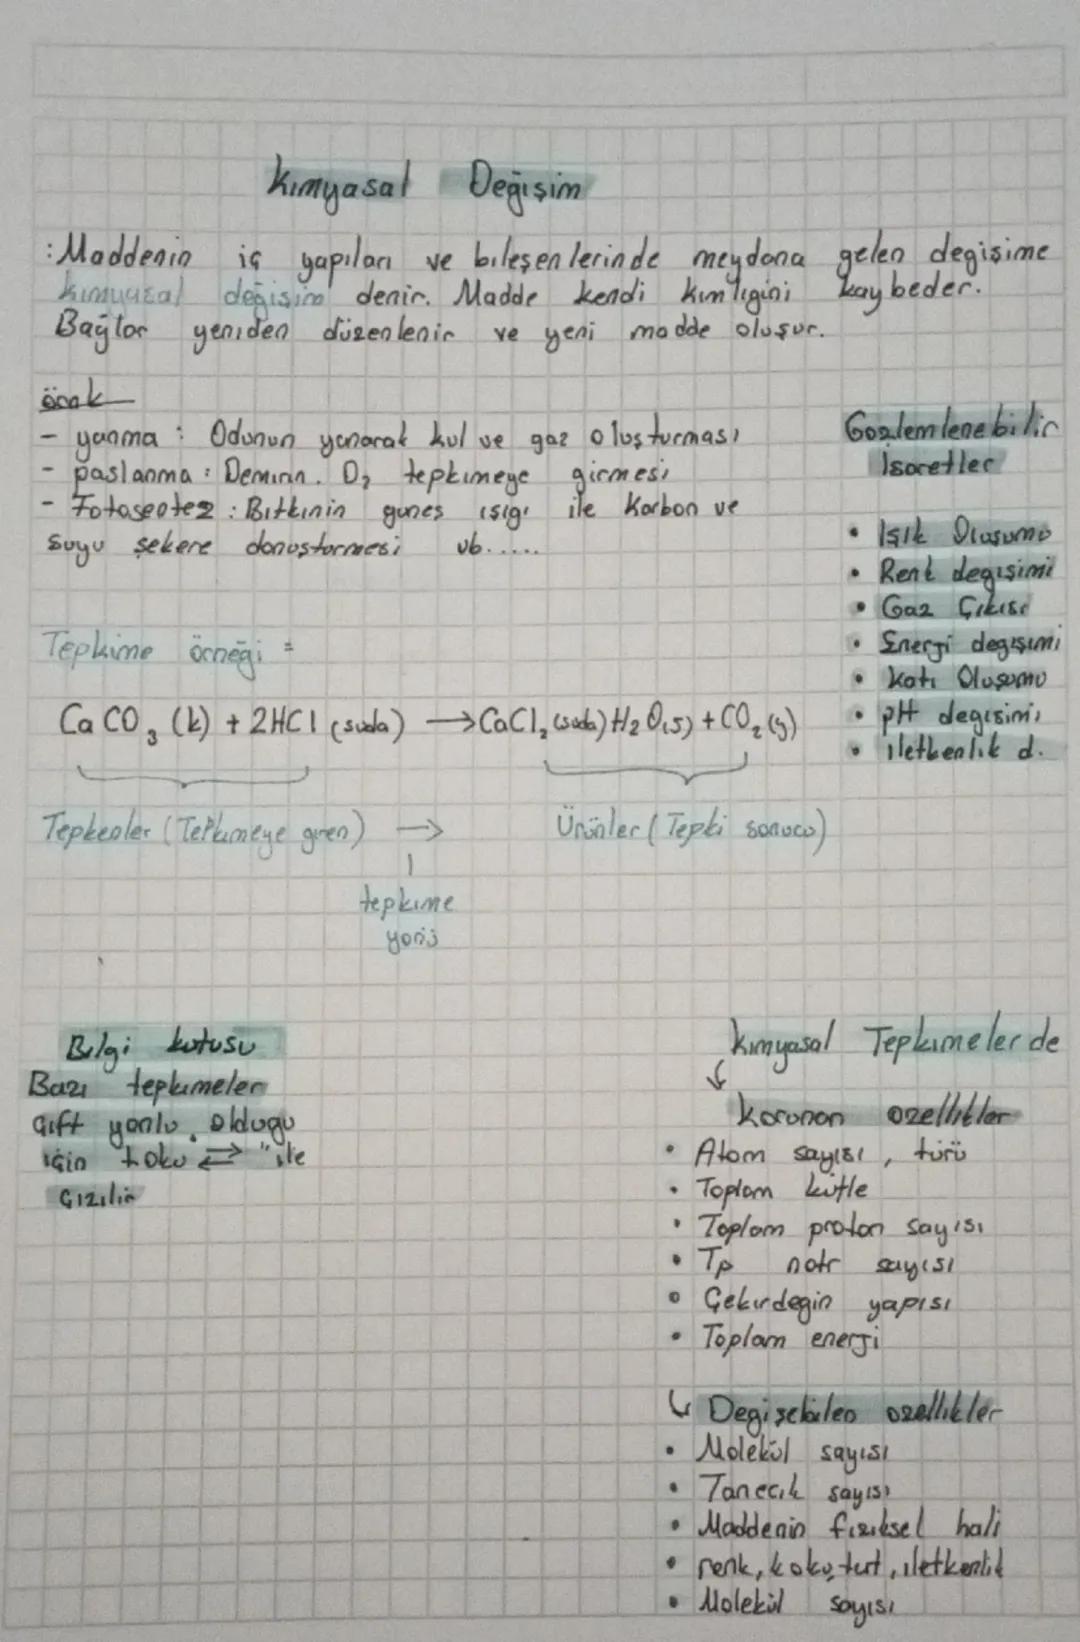 Kimyasal Değişim
: Maddenin iç yapıları ve bileşenlerinde meydana gelen degişime
kimyasal değişim denir. Madde kendi kimligini kaybeder.
Bağlar yeniden düzenlenir ve yeni madde oluşur.
örnk
- yanma : Odunun yanarak kul ve gaz oluşturması
- paslanma : Demirin. O₂ tepkimeye girmesi
- Fotosentez : Bitkinin gunes ısıgı ile Karbon ve
Suyu şekere donusturmesi vb.....
Gozlemlenebilir
Isaretler
• Işık Olusumu
• Renk degişimi
• Gaz Çıkısı
• Enerji degişimi
• Katı Oluşumu
• pH degisimi
• iletkenlik d.
Tepkime örneği =
CaCO₃ (k) + 2HCl (suda) → CaCl₂ (suda) H₂O(s) + CO₂ (g)
Tepkenler (Tepkimeye giren) →
Ürünler (Tepki sonucu)
tepkime
yönü
Bilgi kutusu
Bazı tepkimeler
çift yonlu oldugu
için ⇄ " ile
Çizilir
Kimyasal Tepkimelerde
Korunan ozellikler
• Atom sayısı, türü
• Toplam kütle
• Toplam proton sayısı
• Tp notr sayısı
• Çekirdegin yapısı
• Toplam enerji
↳ Degişebilen ozellikler
• Molekül sayısı
• Tanecik sayısı
• Maddenin fiziksel hali
• renk, koku, tat, iletkenlik
• Molekül sayısı